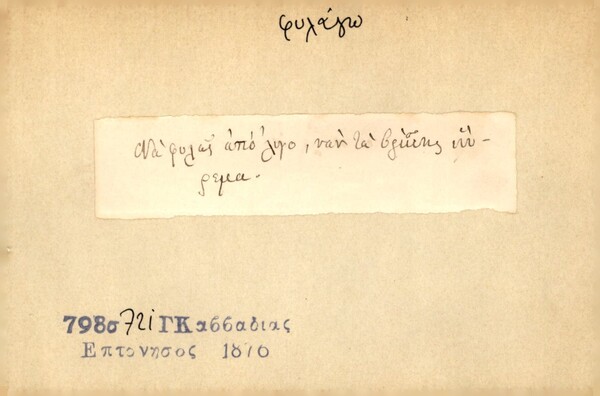 φυλάγω
Νὰ φυλᾷς ἀπὸ λίγο, νὰν τὰ βρίσκῃς εὕ-
ρεμα.
798σ 721 ΓΚαββαδιας
Επτονησος 1876